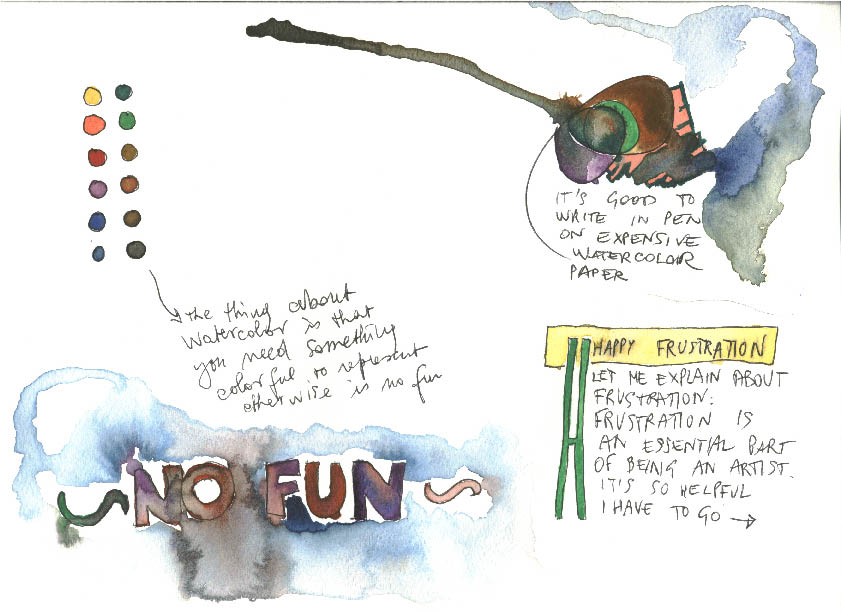 IT'S GOOD TO
WRITE IN PEN
ON EXPENSIVE
WATERCOLOR
PAPER
the thing about
watercolor is that
you need something
colorful to represent
otherwise is no fun
NO FUN
HAPPY FRUSTRATION
LET ME EXPLAIN ABOUT
FRUSTRATION:
FRUSTRATION IS
AN ESSENTIAL PART
OF BEING AN ARTIST.
IT'S SO HELPFUL
I HAVE TO GO →